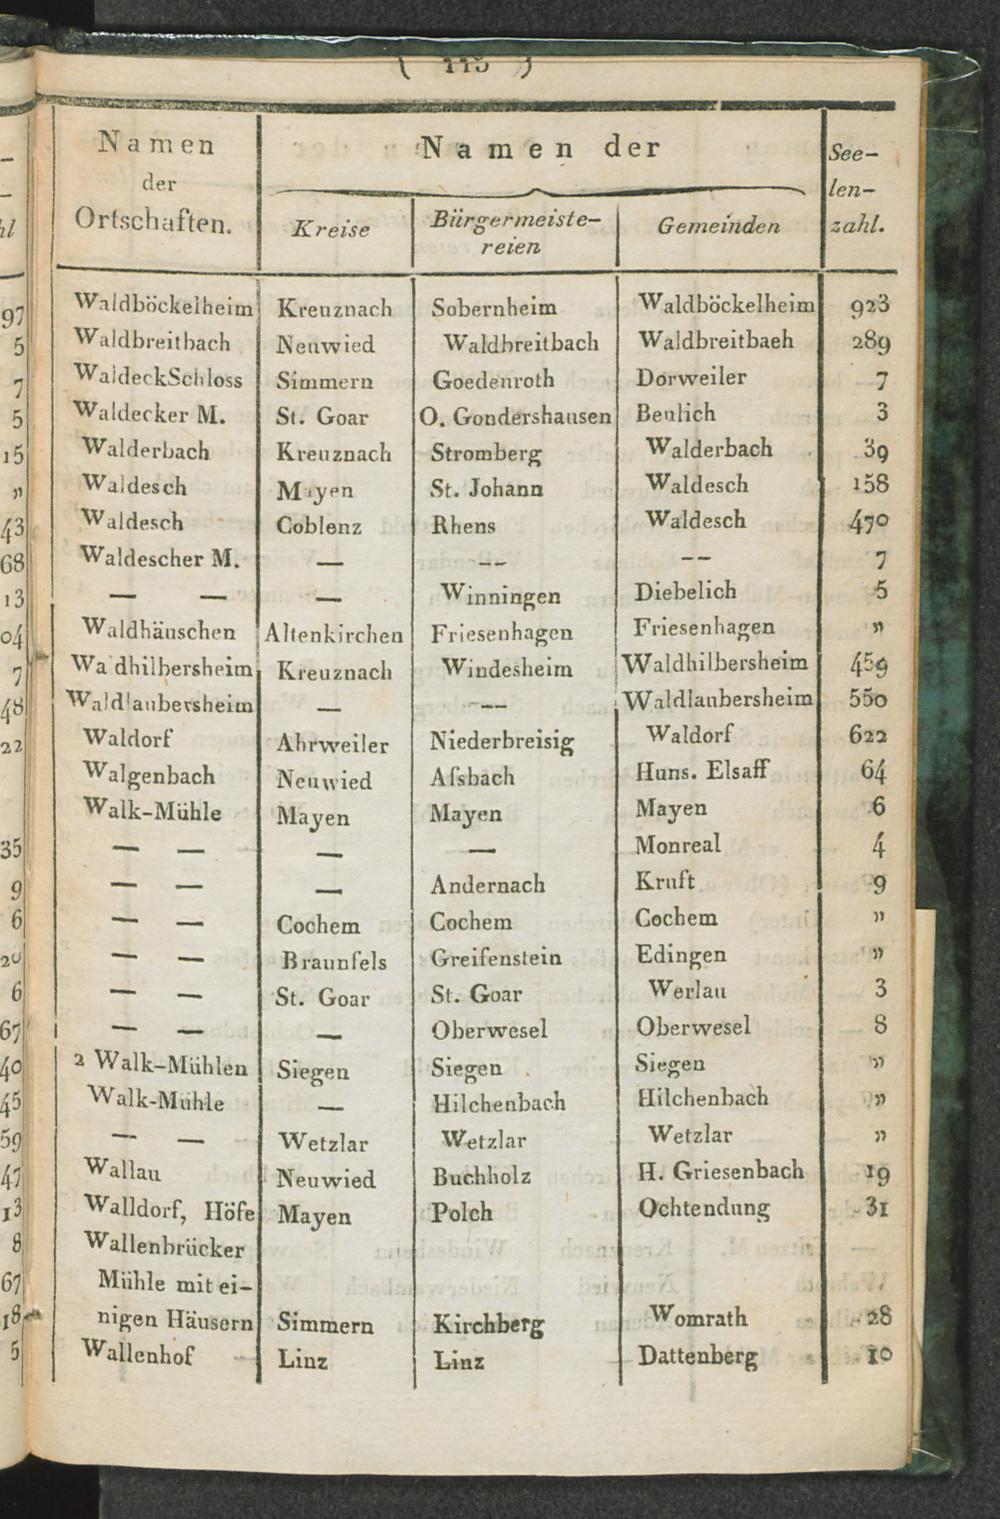 ( 115 )
Namen der Ortschaften. | Namen der | See-len-zahl.
Kreise | Bürgermeiste-reien | Gemeinden
Waldböckelheim | Kreuznach | Sobernheim | Waldböckelheim | 923
Waldbreitbach | Neuwied | Waldbreitbach | Waldbreitbaeh | 289
WaldeckSchloss | Simmern | Goedenroth | Dorweiler | 7
Waldecker M. | St. Goar | O. Gondershausen | Beulich | 3
Walderbach | Kreuznach | Stromberg | Walderbach | 39
Waldesch | Mayen | St. Johann | Waldesch | 158
Waldesch | Coblenz | Rhens | Waldesch | 470
Waldescher M. | — | -- | -- | 7
— — | — | Winningen | Diebelich | 5
Waldhäuschen | Altenkirchen | Friesenhagen | Friesenhagen | „
Wa dhilbersheim | Kreuznach | Windesheim | Waldhilbersheim | 459
Waldlaubersheim | — | -- | Waldlaubersheim | 550
Waldorf | Ahrweiler | Niederbreisig | Waldorf | 622
Walgenbach | Neuwied | Afsbach | Huns. Elsaff | 64
Walk-Mühle | Mayen | Mayen | Mayen | 6
— — | — | — | Monreal | 4
— — | — | Andernach | Kruft | 9
— — | Cochem | Cochem | Cochem | „
— — | Braunfels | Greifenstein | Edingen | „
— — | St. Goar | St. Goar | Werlau | 3
— — | — | Oberwesel | Oberwesel | 8
2 Walk-Mühlen | Siegen | Siegen | Siegen | „
Walk-Mühle | — | Hilchenbach | Hilchenbach | „
— — | Wetzlar | Wetzlar | Wetzlar | „
Wallau | Neuwied | Buchholz | H. Griesenbach | 19
Walldorf, Höfe | Mayen | Polch | Ochtendung | 31
Wallenbrücker
Mühle mit ei-
nigen Häusern | Simmern | Kirchberg | Womrath | 28
Wallenhof | Linz | Linz | Dattenberg | 10